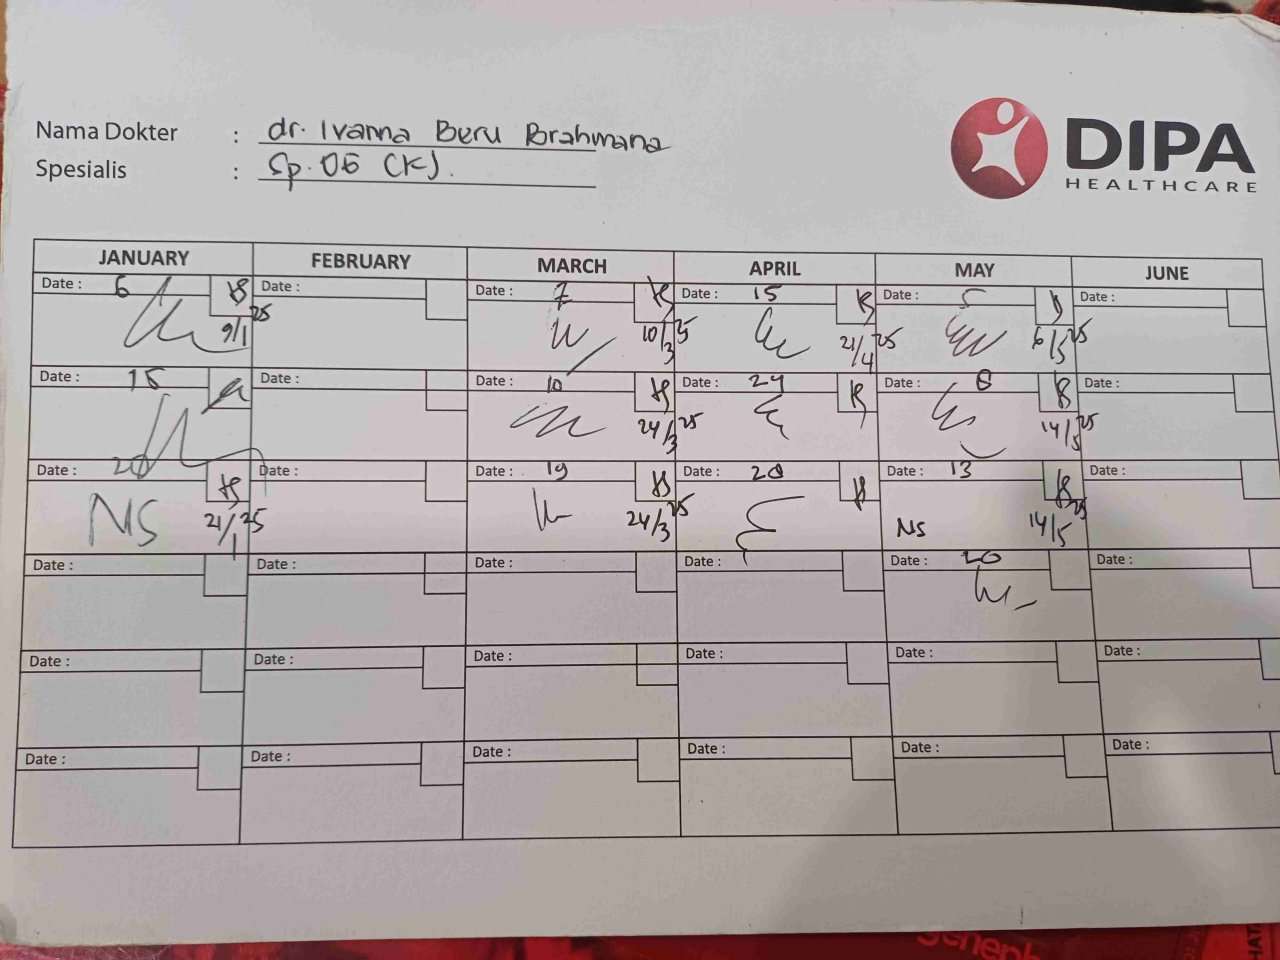 Nama Dokter : dr. Ivanna Beru Brahmana
Spesialis : Sp. OG (K).
DIPA
HEALTHCARE
JANUARY FEBRUARY MARCH APRIL MAY JUNE
Date : 6 Date : Date : 7 Date : 15 Date : 5 Date :
9/1 25 10/3 25 21/4 25 6/5 25
Date : 15 Date : Date : 10 Date : 24 Date : 8 Date :
24/3 25 14/5 25
Date : 20 Date : Date : 19 Date : 28 Date : 13 Date :
NS 21/1 25 24/3 25 NS 14/5 25
Date : Date : Date : Date : Date : 20 Date :
Date : Date : Date : Date : Date : Date :
Date : Date : Date : Date : Date : Date :